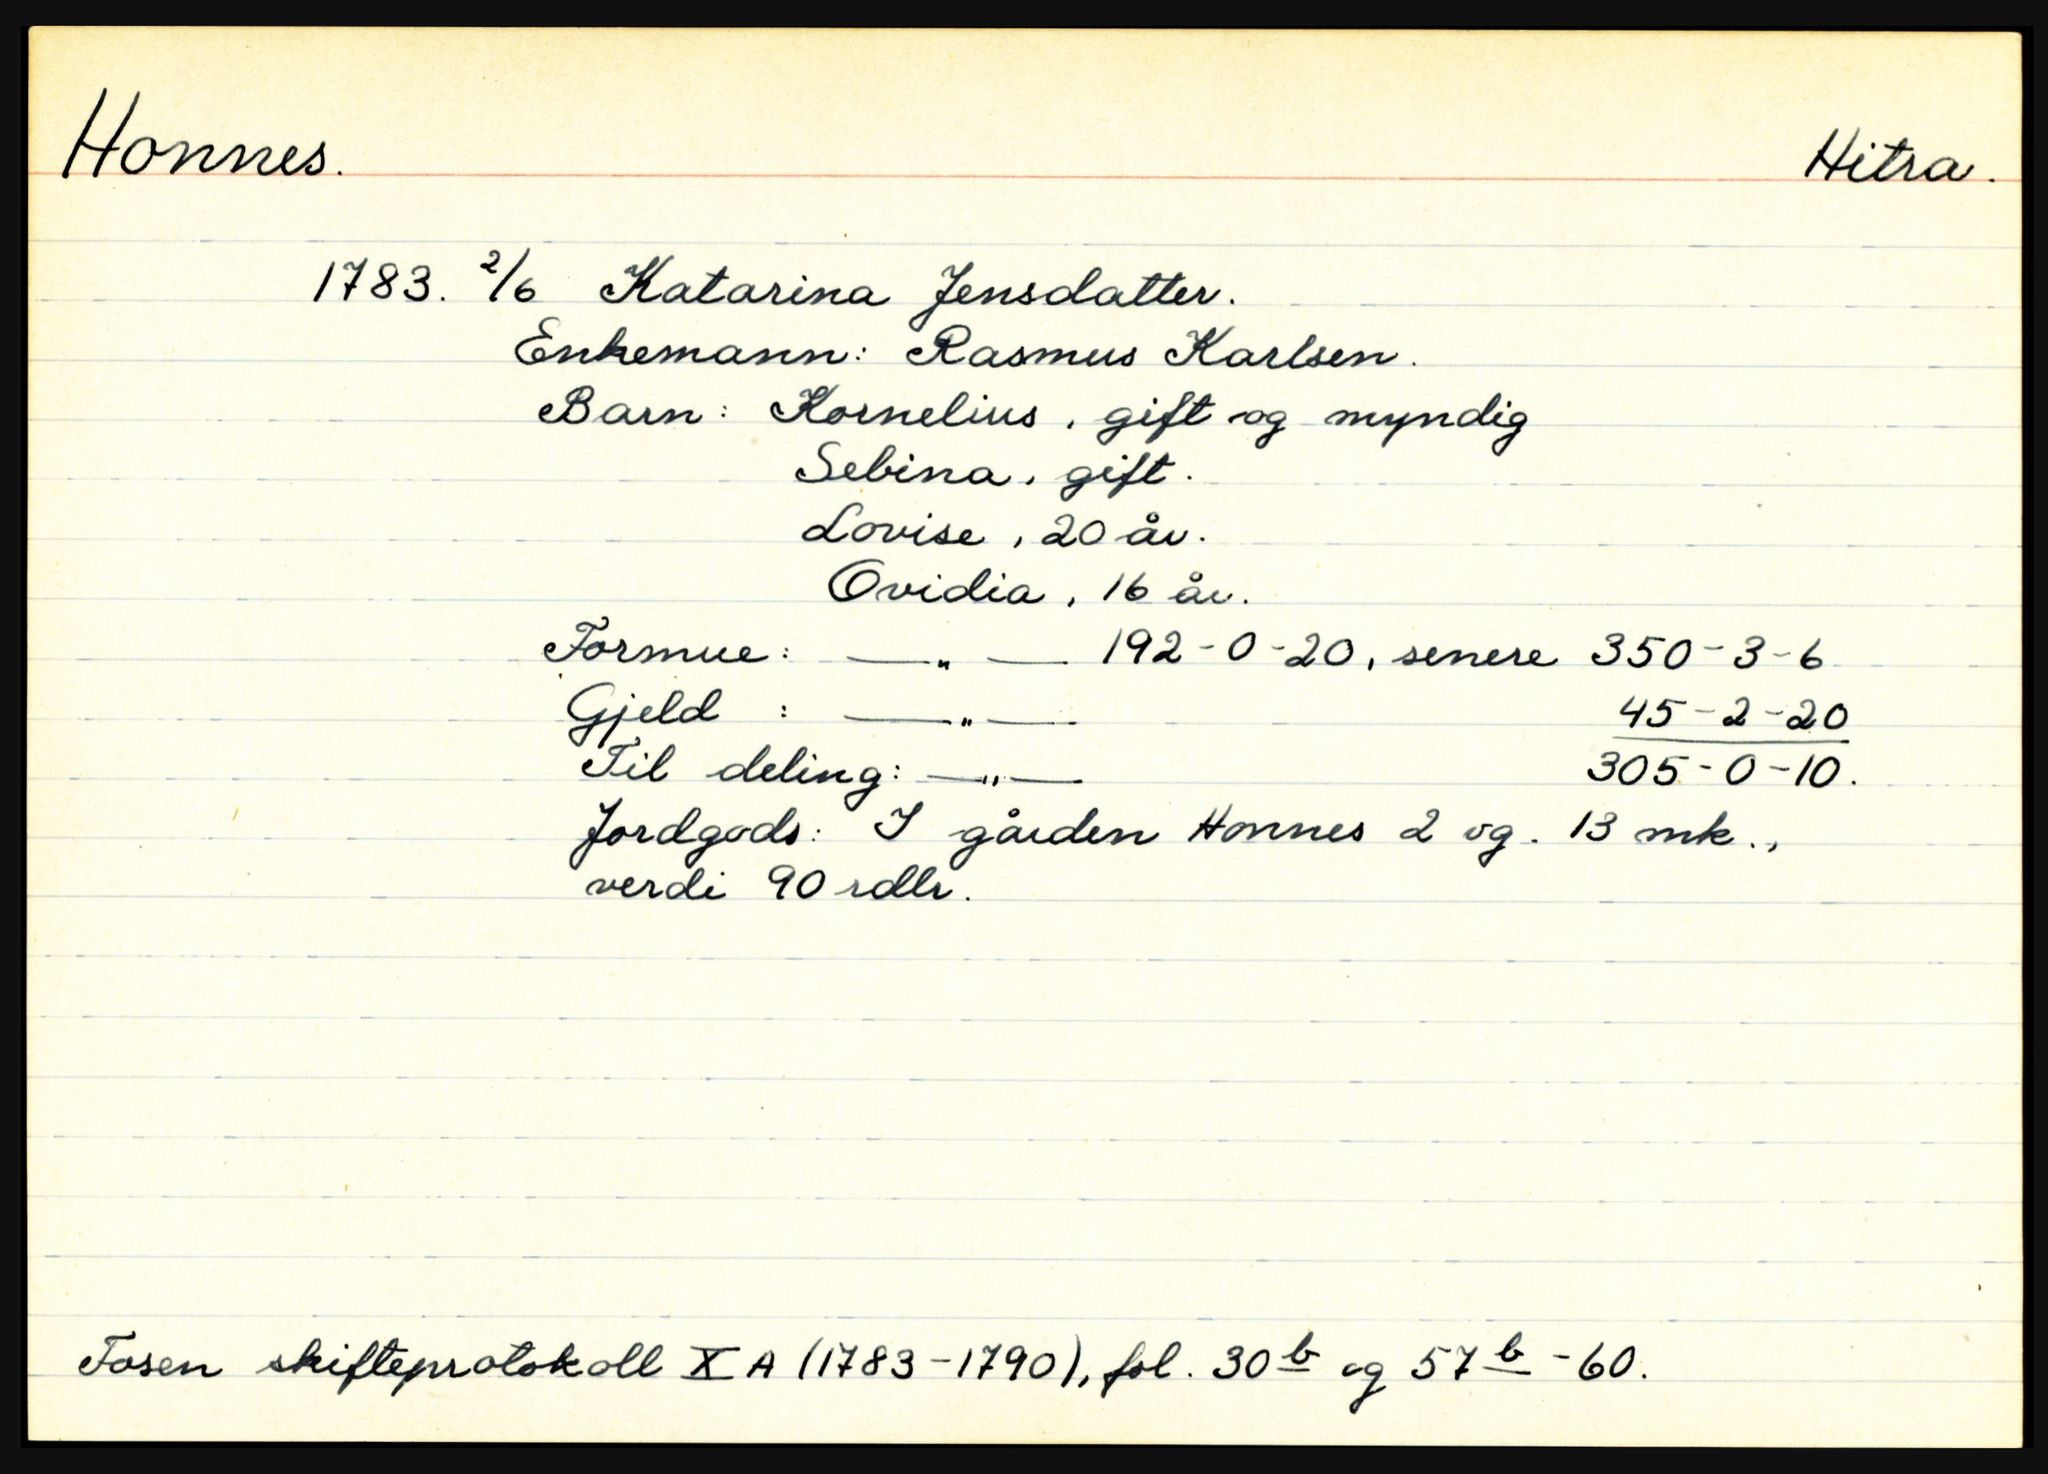 Honnes.
Hitra.
1783. 2/6 Katarina Jensdatter.
Enkemann: Rasmus Karlsen.
Barn: Kornelius, gift og myndig
Sebina, gift.
Lovise, 20 år.
Ovidia, 16 år.
Formue: —„— 192-0-20, senere 350-3-6
Gjeld : —„— 45-2-20
Til deling: —„— 305-0-10.
Jordgods: I gården Honnes 2 og. 13 mk.,
verdi 90 rdlr.
Fosen skifteprotokoll X A (1783-1790), fol. 30b og 57b-60.